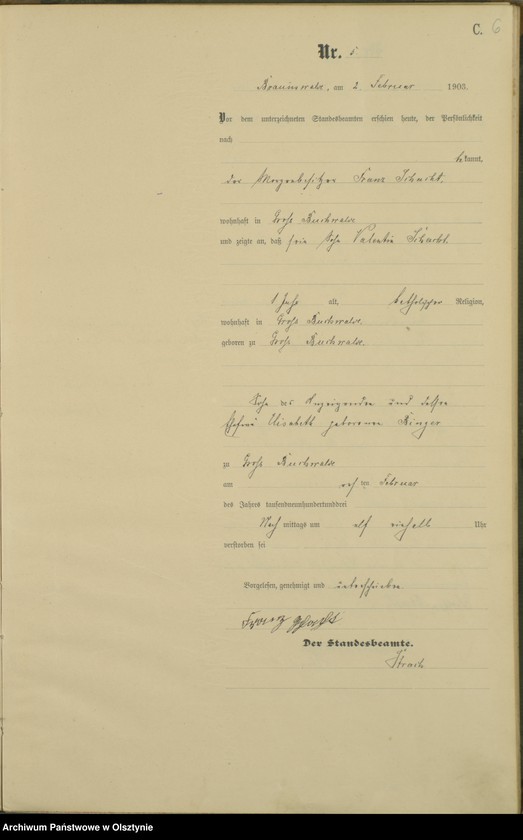 C. 6
Nr. 5
Braunswalde, am 2. Februar 1903.
Vor dem unterzeichneten Standesbeamten erschien heute, der Persönlichkeit
nach
bekannt,
der Franz Schacht,
wohnhaft in Groß Buchwalde
und zeigte an, daß sein Sohn Valentin Schacht
1 Jahr alt, katholischer Religion,
wohnhaft in Groß Buchwalde
geboren zu Groß Buchwalde
Sohn des Anzeigenden und dessen
Ehefrau Elisabeth geborenen
zu Groß Buchwalde
am ersten Februar
des Jahres tausendneunhundertunddrei
Nach mittags um elf Uhr
verstorben sei
Vorgelesen, genehmigt und unterschrieben
Franz Schacht
Der Standesbeamte.
Archiwum Państwowe w Olsztynie